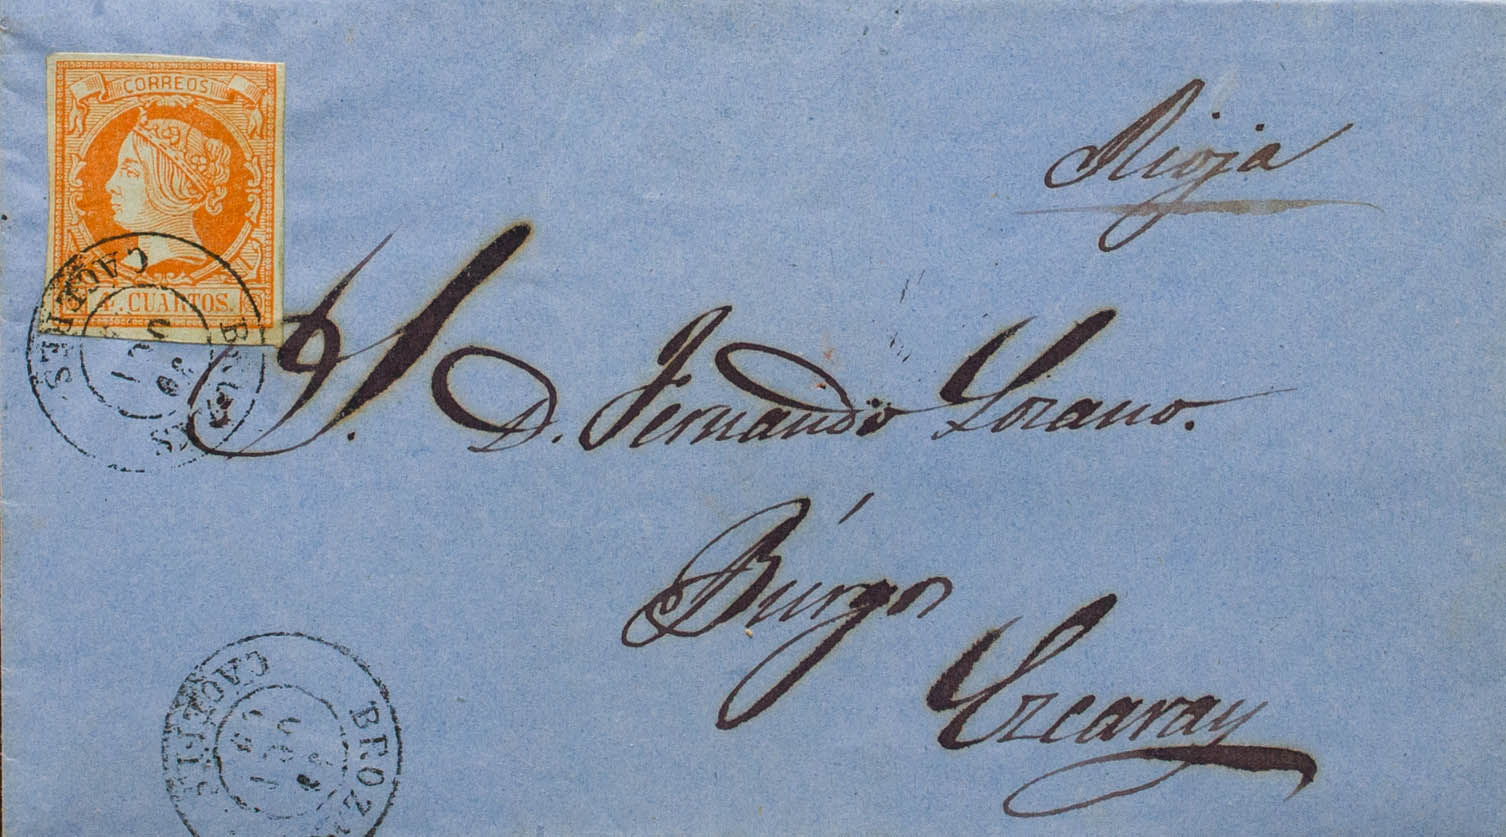 CORREOS
4 CUARTOS.
Rioja
S. D. Fernando Lozano.
Búrgos
Ezcaray
BROZAS
CACERES
BROZ
CACERES